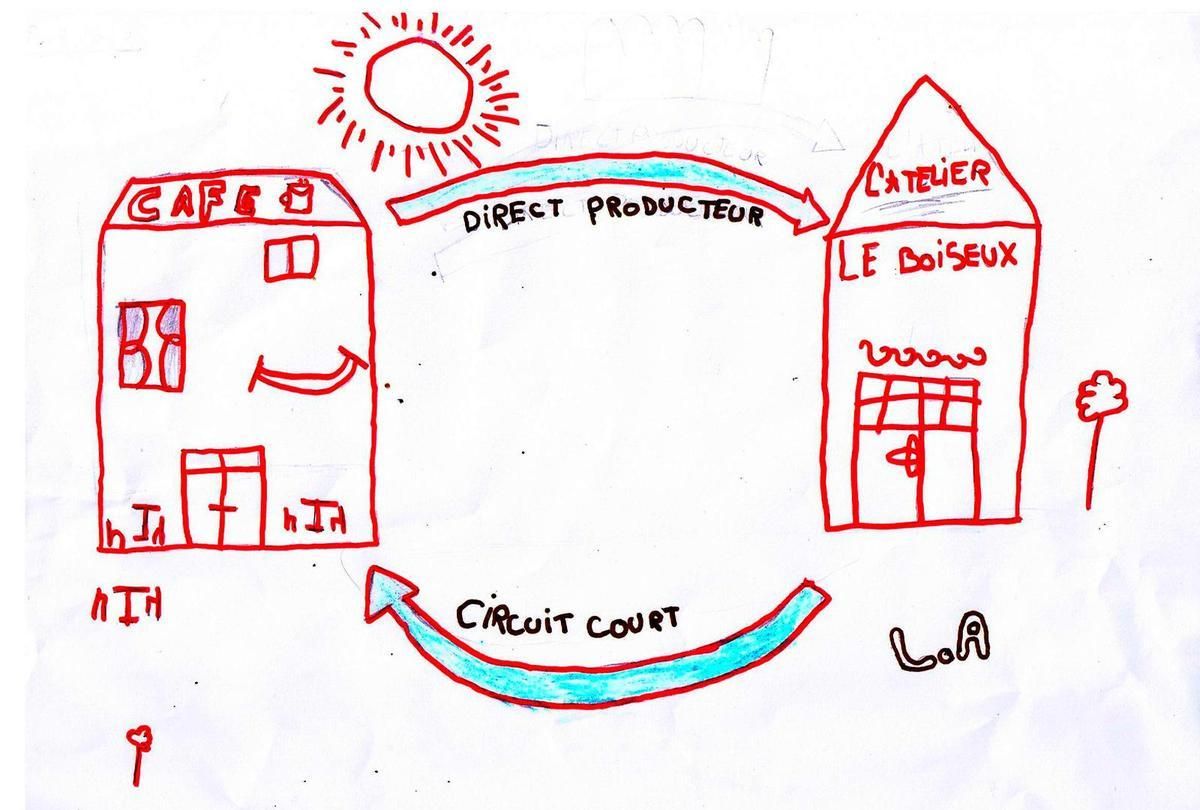 CAFE
DIRECT PRODUCTEUR
L'ATELIER
LE BOISEUX
CIRCUIT COURT
L.A